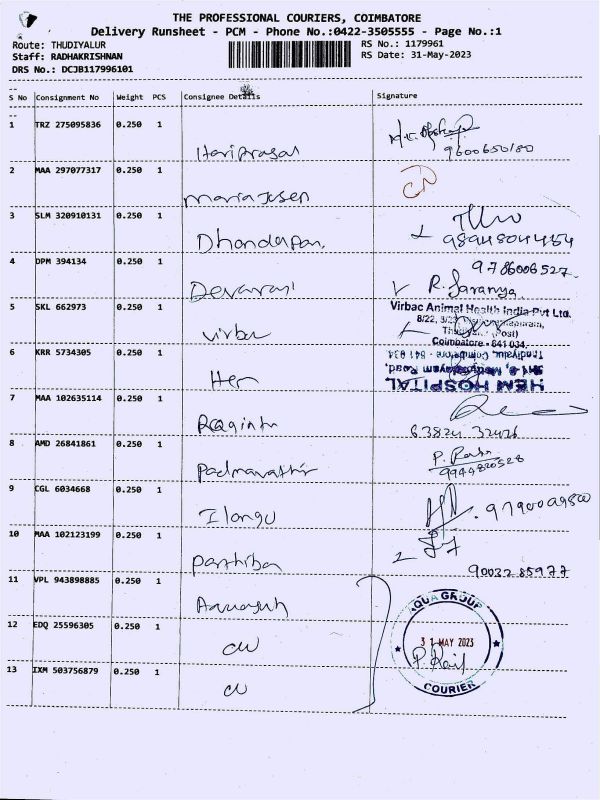 THE PROFESSIONAL COURIERS, COIMBATORE
Delivery Runsheet - PCM - Phone No.:0422-3505555 - Page No.:1
Route: THUDIYALUR
RS No.: 1179961
Staff: RADHAKRISHNAN
RS Date: 31-May-2023
DRS No.: DCJB117996101
S No Consignment No Weight PCS Consignee Details Signature
1 TRZ 275095836 0.250 1 Hariprasad 9600650180
2 MAA 297077317 0.250 1 Maria Josen
3 SLM 320910131 0.250 1 Dhandapan. 9894804454
4 DPM 394134 0.250 1 Devaraj R. Saranya 9786006527.
5 SKL 662973 0.250 1 Virbac
Virbac Animal Health India Pvt Ltd.
8/22,
(Post)
Coimbatore - 641 034.
6 KRR 5734305 0.250 1 Hem
HEM HOSPITAL
Road,
Thudiyalur, Coimbatore - 641 034
7 MAA 102635114 0.250 1 63824 32426
8 AMD 26841861 0.250 1 Padmavathi 9944820528
9 CGL 6034668 0.250 1 Ilango
10 MAA 102123199 0.250 1 Parthiban 90032 85977
11 VPL 943898885 0.250 1
12 EDQ 25596305 0.250 1
13 IXM 503756879 0.250 1
AQUA GROUP
31 MAY 2023
COURIER